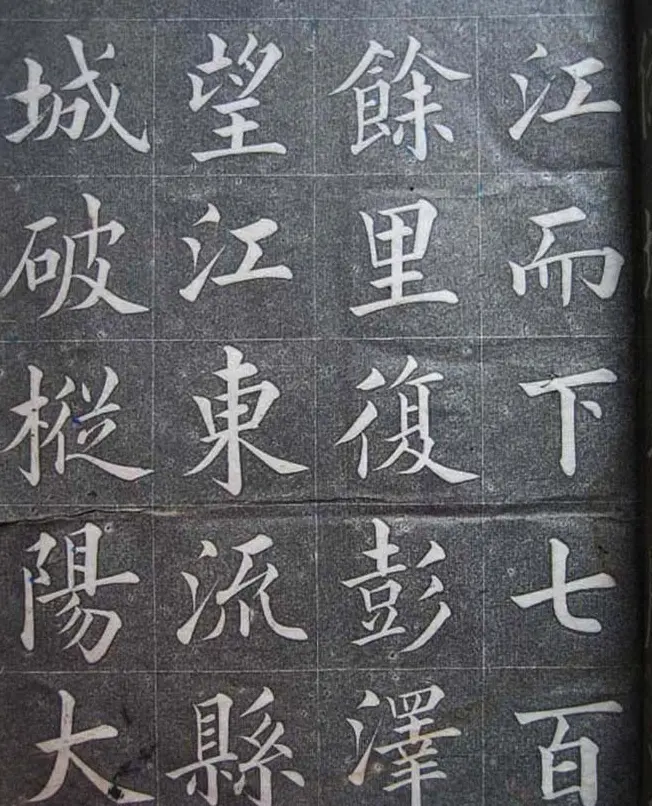 江而下七百
餘里復彭澤
望江東流縣
城破樅陽大